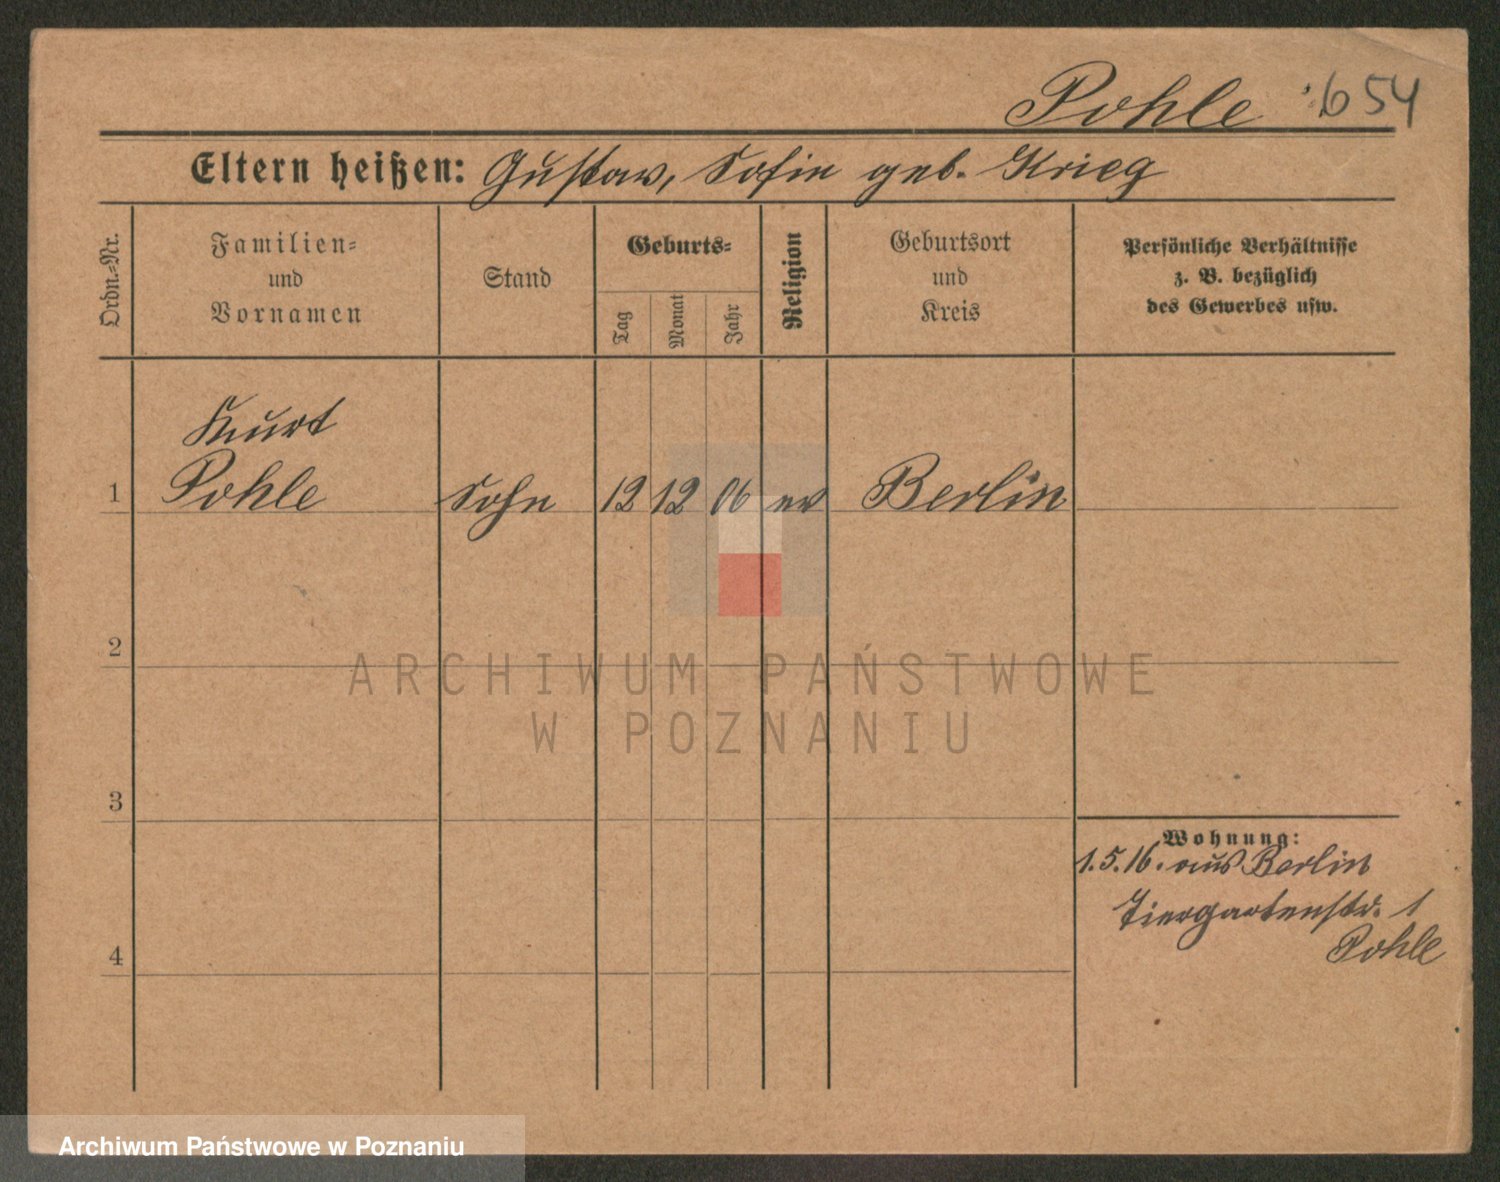 Pohle 654
Eltern heißen: Gustav, Sofie geb. Krieg
Ordn.=Nr.
Familien=
und
Vornamen
Stand
Geburts=
Tag
Monat
Jahr
Religion
Geburtsort
und
Kreis
Persönliche Verhältnisse
z. B. bezüglich
des Gewerbes usw.
Kurt
1 Pohle Sohn 12 12 06 ev Berlin
2
3
4
Wohnung:
1.5.16. aus Berlin
Tiergartenstr. 1
Pohle
ARCHIWUM PAŃSTWOWE
W POZNANIU
Archiwum Państwowe w Poznaniu